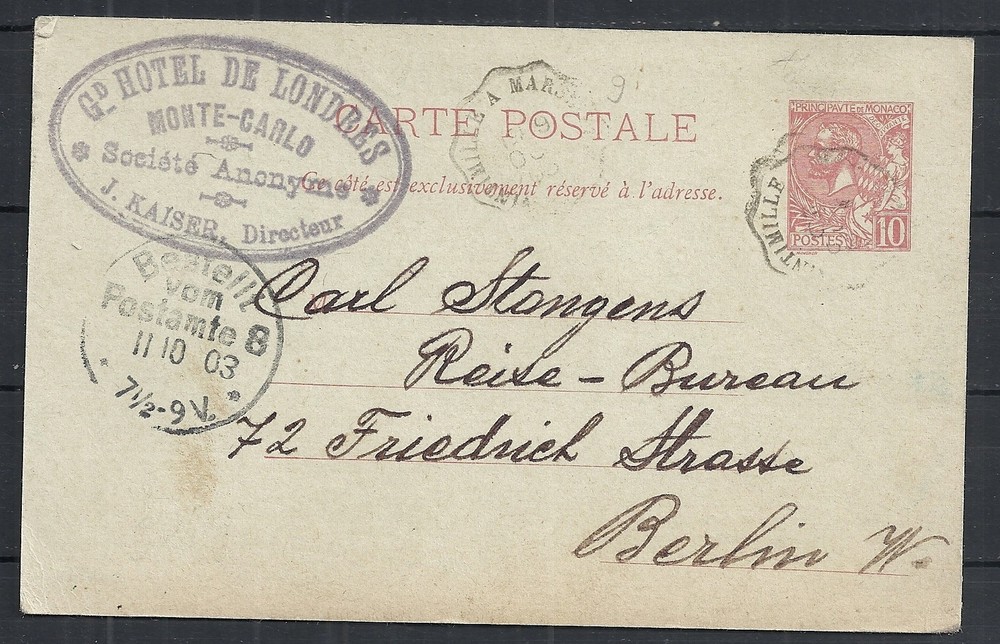 GD HOTEL DE LONDRES
MONTE-CARLO
Société Anonyme
J. KAISER, Directeur
VINTIMILLE A MARS
9
CARTE POSTALE
Ce côté est exclusivement réservé à l'adresse.
PRINCIPAVTE DE MONACO
POSTES
10
VINTIMILLE
Bestellt
vom
Postamte 8
11 10 03
7½-9V.
Carl Stangens
Reise-Bureau
72 Friedrich Strasse
Berlin W.